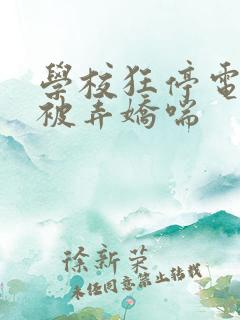 學校狂停電
被弄嬌喘
徐新荣
未经同意禁止转载